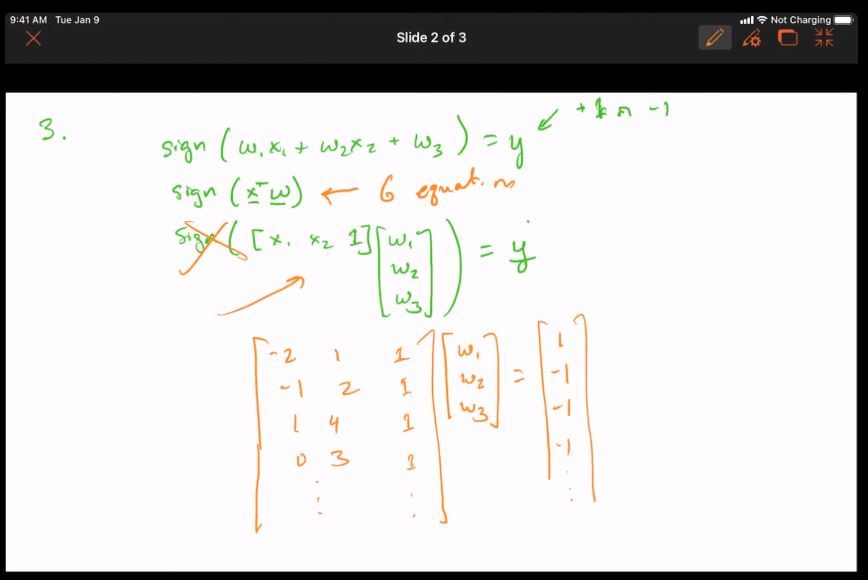 9:41 AM Tue Jan 9
Not Charging
Slide 2 of 3
3.
sign ( w₁x₁ + w₂x₂ + w₃ ) = y
+1 or -1
sign (xᵀw) ← 6 equations
sign ( [x₁ x₂ 1] [w₁ w₂ w₃] ) = y
-2 1 1 w₁ = 1
-1 2 1 w₂ -1
1 4 1 w₃ -1
0 3 1 -1
⋮ ⋮ ⋮